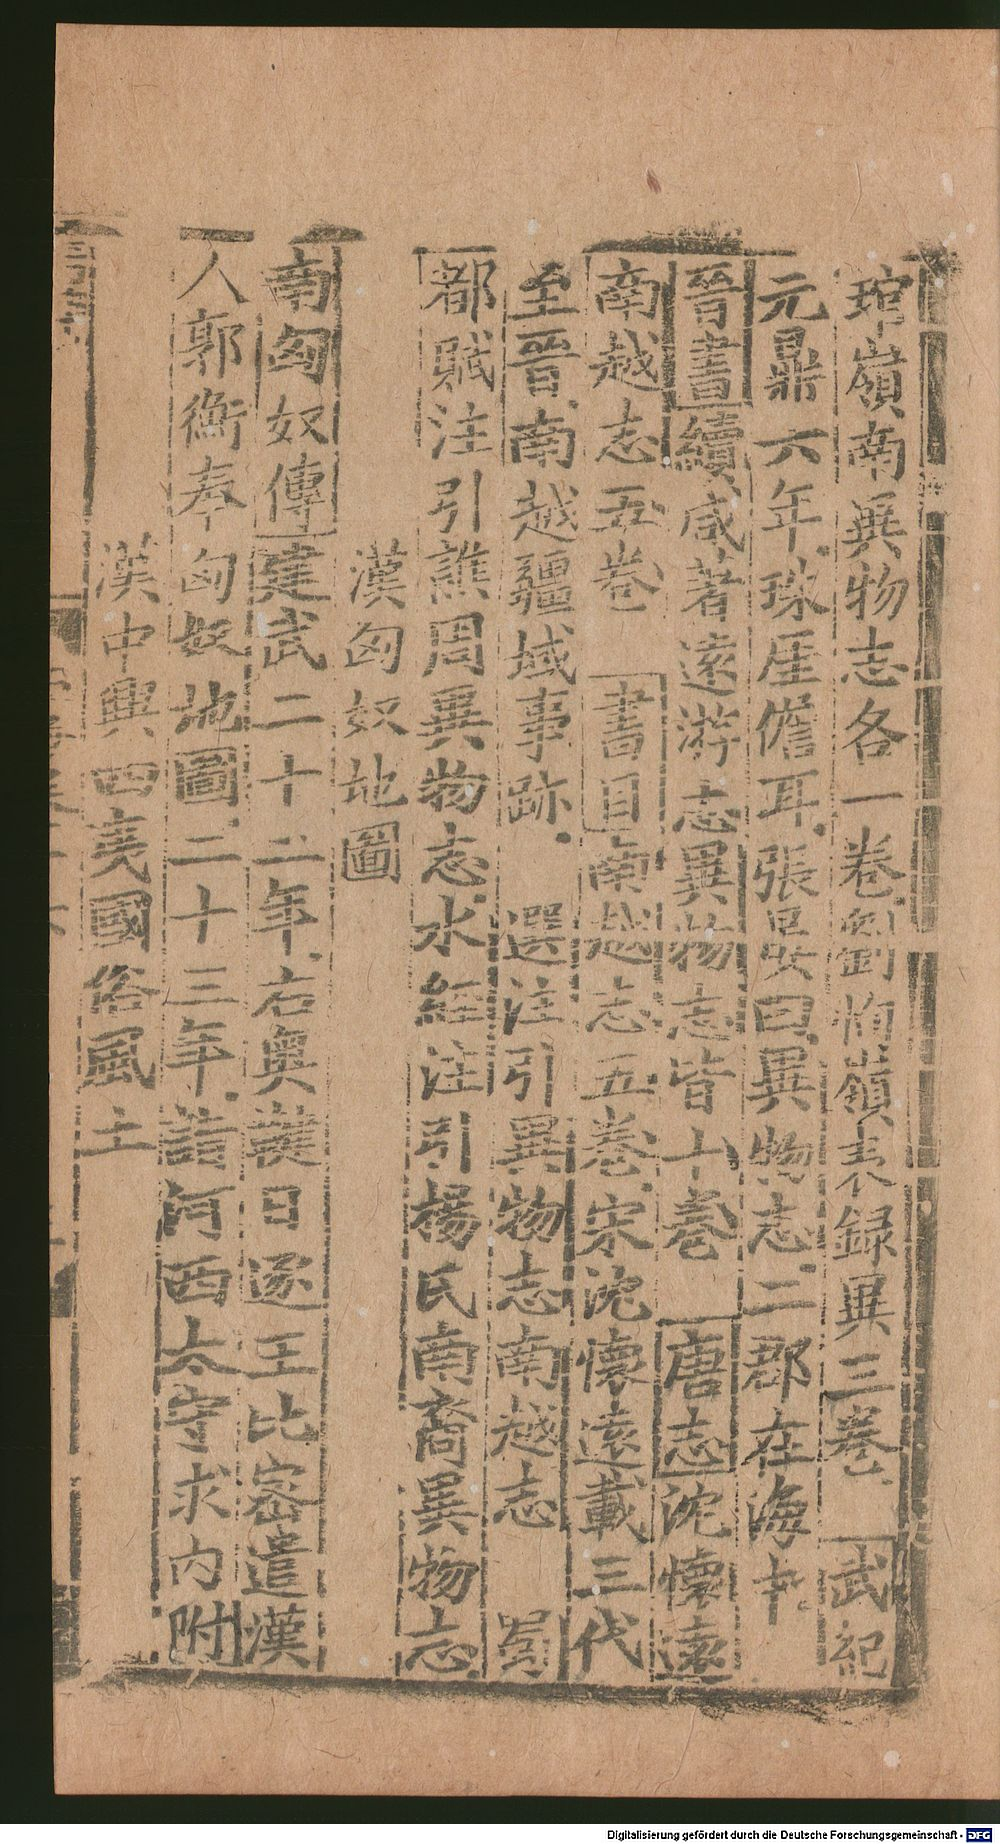 琯嶺南異物志各一卷劉恂嶺表録異三卷武紀
元鼎六年珠厓儋耳張晏曰異物志二郡在海中
晉書續咸著遠游志異物志皆十卷 唐志沈懷遠
南越志五卷 書目南越志五卷宋沈懷遠載三代
至晉南越疆域事跡 選注引異物志南越志 蜀
都賦注引譙周異物志水經注引楊氏南裔異物志
漢匈奴地圖
南匈奴傳建武二十二年右奥鞬日逐王比密遣漢
人郭衡奉匈奴地圖二十三年詣河西太守求内附
漢中興四夷國俗風土
Digitalisierung gefördert durch die Deutsche Forschungsgemeinschaft - DFG